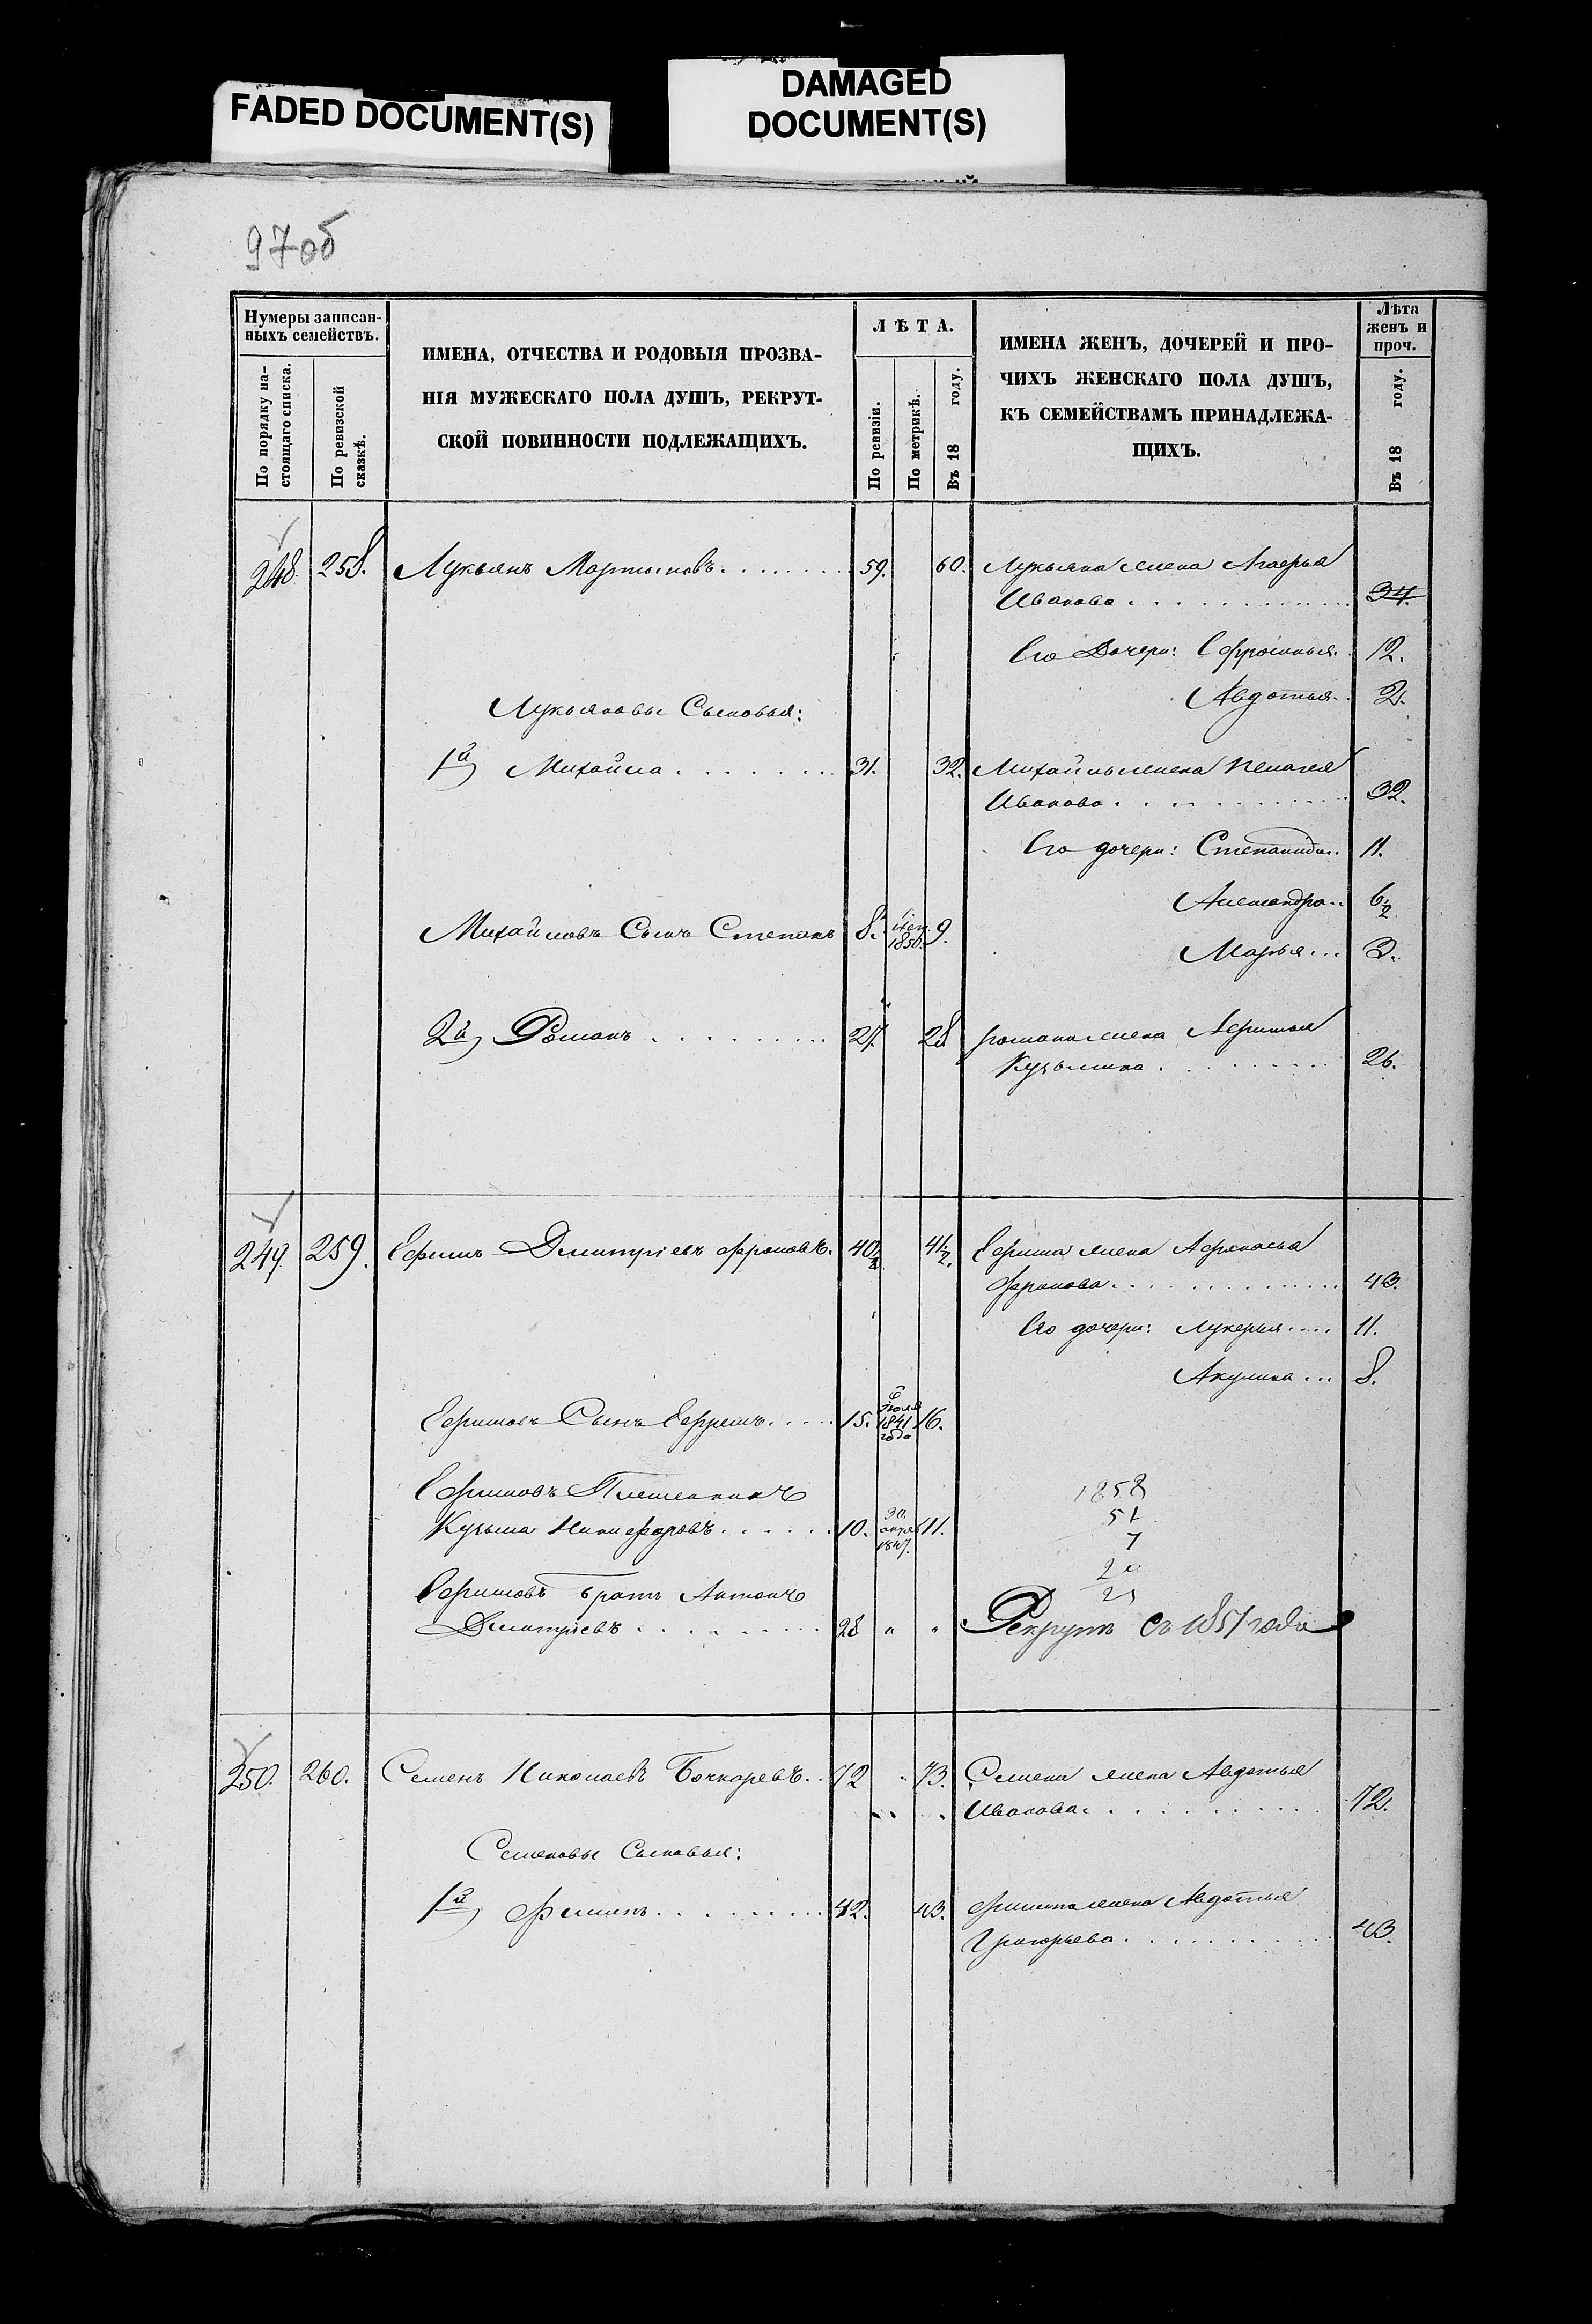 FADED DOCUMENT(S)
DAMAGED
DOCUMENT(S)
97об
Нумеры записан-
ныхъ семействъ.
По порядку на-
стоящаго списка.
По ревизской
сказкѣ.
ИМЕНА, ОТЧЕСТВА И РОДОВЫЯ ПРОЗВА-
НІЯ МУЖЕСКАГО ПОЛА ДУШЪ, РЕКРУТ-
СКОЙ ПОВИННОСТИ ПОДЛЕЖАЩИХЪ.
ЛѢТА.
По ревизіи.
По метрикѣ.
Въ 18 году.
ИМЕНА ЖЕНЪ, ДОЧЕРЕЙ И ПРО-
ЧИХЪ ЖЕНСКАГО ПОЛА ДУШЪ,
КЪ СЕМЕЙСТВАМЪ ПРИНАДЛЕЖА-
ЩИХЪ.
Лѣта
женъ и
проч.
Въ 18 году.
248. 258. Лукьянъ Мартыновъ . . . . . . . 59. 60. Лукьяна жена Агафья
Иванова . . . . . . . . . . . 34.
Его Дочери: Ефросинья. 12.
Авдотья. 2.
Лукьяновы Сыновья:
1й Михайла . . . . . . . 31. 32. Михайлы жена Пелагея
Иванова . . . . . . . . . . . 32.
Его дочери: Степанида.. 11.
Александра.. 6½
Михайловъ Сынъ Степанъ 8. 1850. 9.
Марья... 3.
2й Романъ . . . . . . . . . 27. 28 Романа жена Афимья
Кузьмина . . . . . . . . . 26.
249. 259. Ефимъ Дмитріевъ Фроловъ. 40½ 41½. Ефима жена Афанасья
Фролова . . . . . . . . . . . . 43.
Его дочери: Лукерья.... 11.
Акулина... 8.
Ефимовъ Сынъ Ефремъ . . . . 15. 6 Іюля 1841 года 16.
Ефимовъ Племянникъ
Кузьма Никифоровъ . . . . . . 10. 30. апрля 1847. 11.
1858
51
7
20
21
Ефимовъ братъ Антонъ
Дмитріевъ . . . . . . . . . 28 " " Рекрутъ съ 1851 года
250. 260. Семенъ Николаевъ Бочкаревъ.. 72 73. Семена жена Авдотья
Иванова. . . . . . . . . . 72.
Семеновы Сыновья:
1й Филипъ . . . . . . . . 42. 43. Филипа жена Авдотья
Григорьева . . . . . . . . . 43.